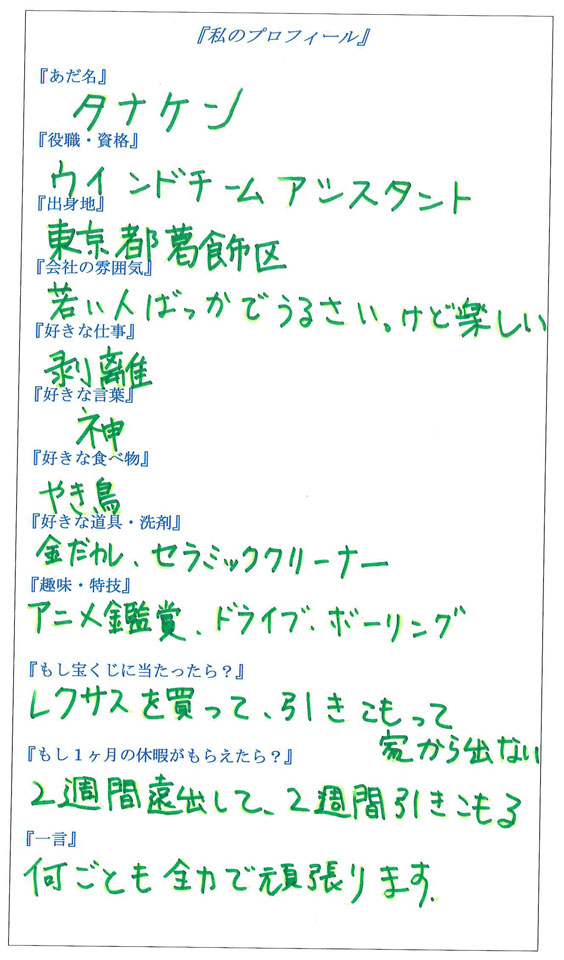 『私のプロフィール』
『あだ名』
タナケン
『役職・資格』
ウインドチームアシスタント
『出身地』
東京都葛飾区
『会社の雰囲気』
若い人ばっかでうるさい。けど楽しい
『好きな仕事』
剥離
『好きな言葉』
神
『好きな食べ物』
やき鳥
『好きな道具・洗剤』
金だわし、セラミッククリーナー
『趣味・特技』
アニメ鑑賞、ドライブ、ボーリング
『もし宝くじに当たったら？』
レクサスを買って、引きこもって
家から出ない
『もし１ヶ月の休暇がもらえたら？』
2週間遠出して、2週間引きこもる
『一言』
何ごとも全力で頑張ります。